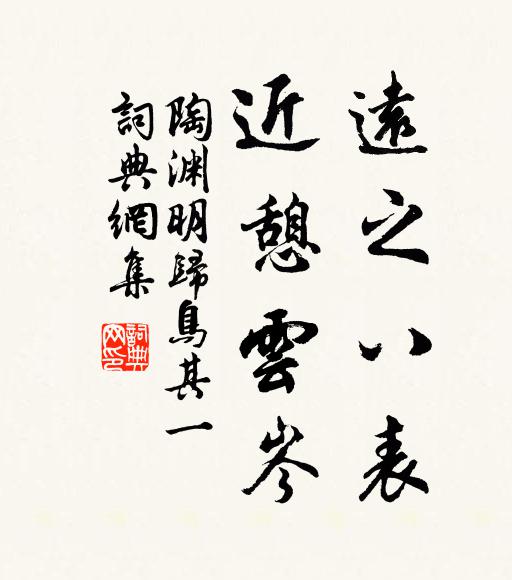 遠之八表
近憩雲岑
陶渊明歸鳥其一
詞典網集
詞典网印